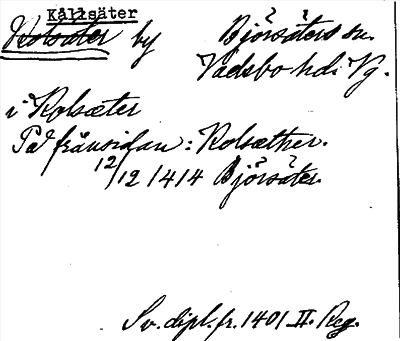 Kållsäter
Kolsäter by Björsäters sn.
Vadsbo hd. Vg.
i Kolsæter
På frånsidan: Kolsæther.
12/12 1414 Björsäter.
Sv. dipl. fr. 1401 II. Reg.